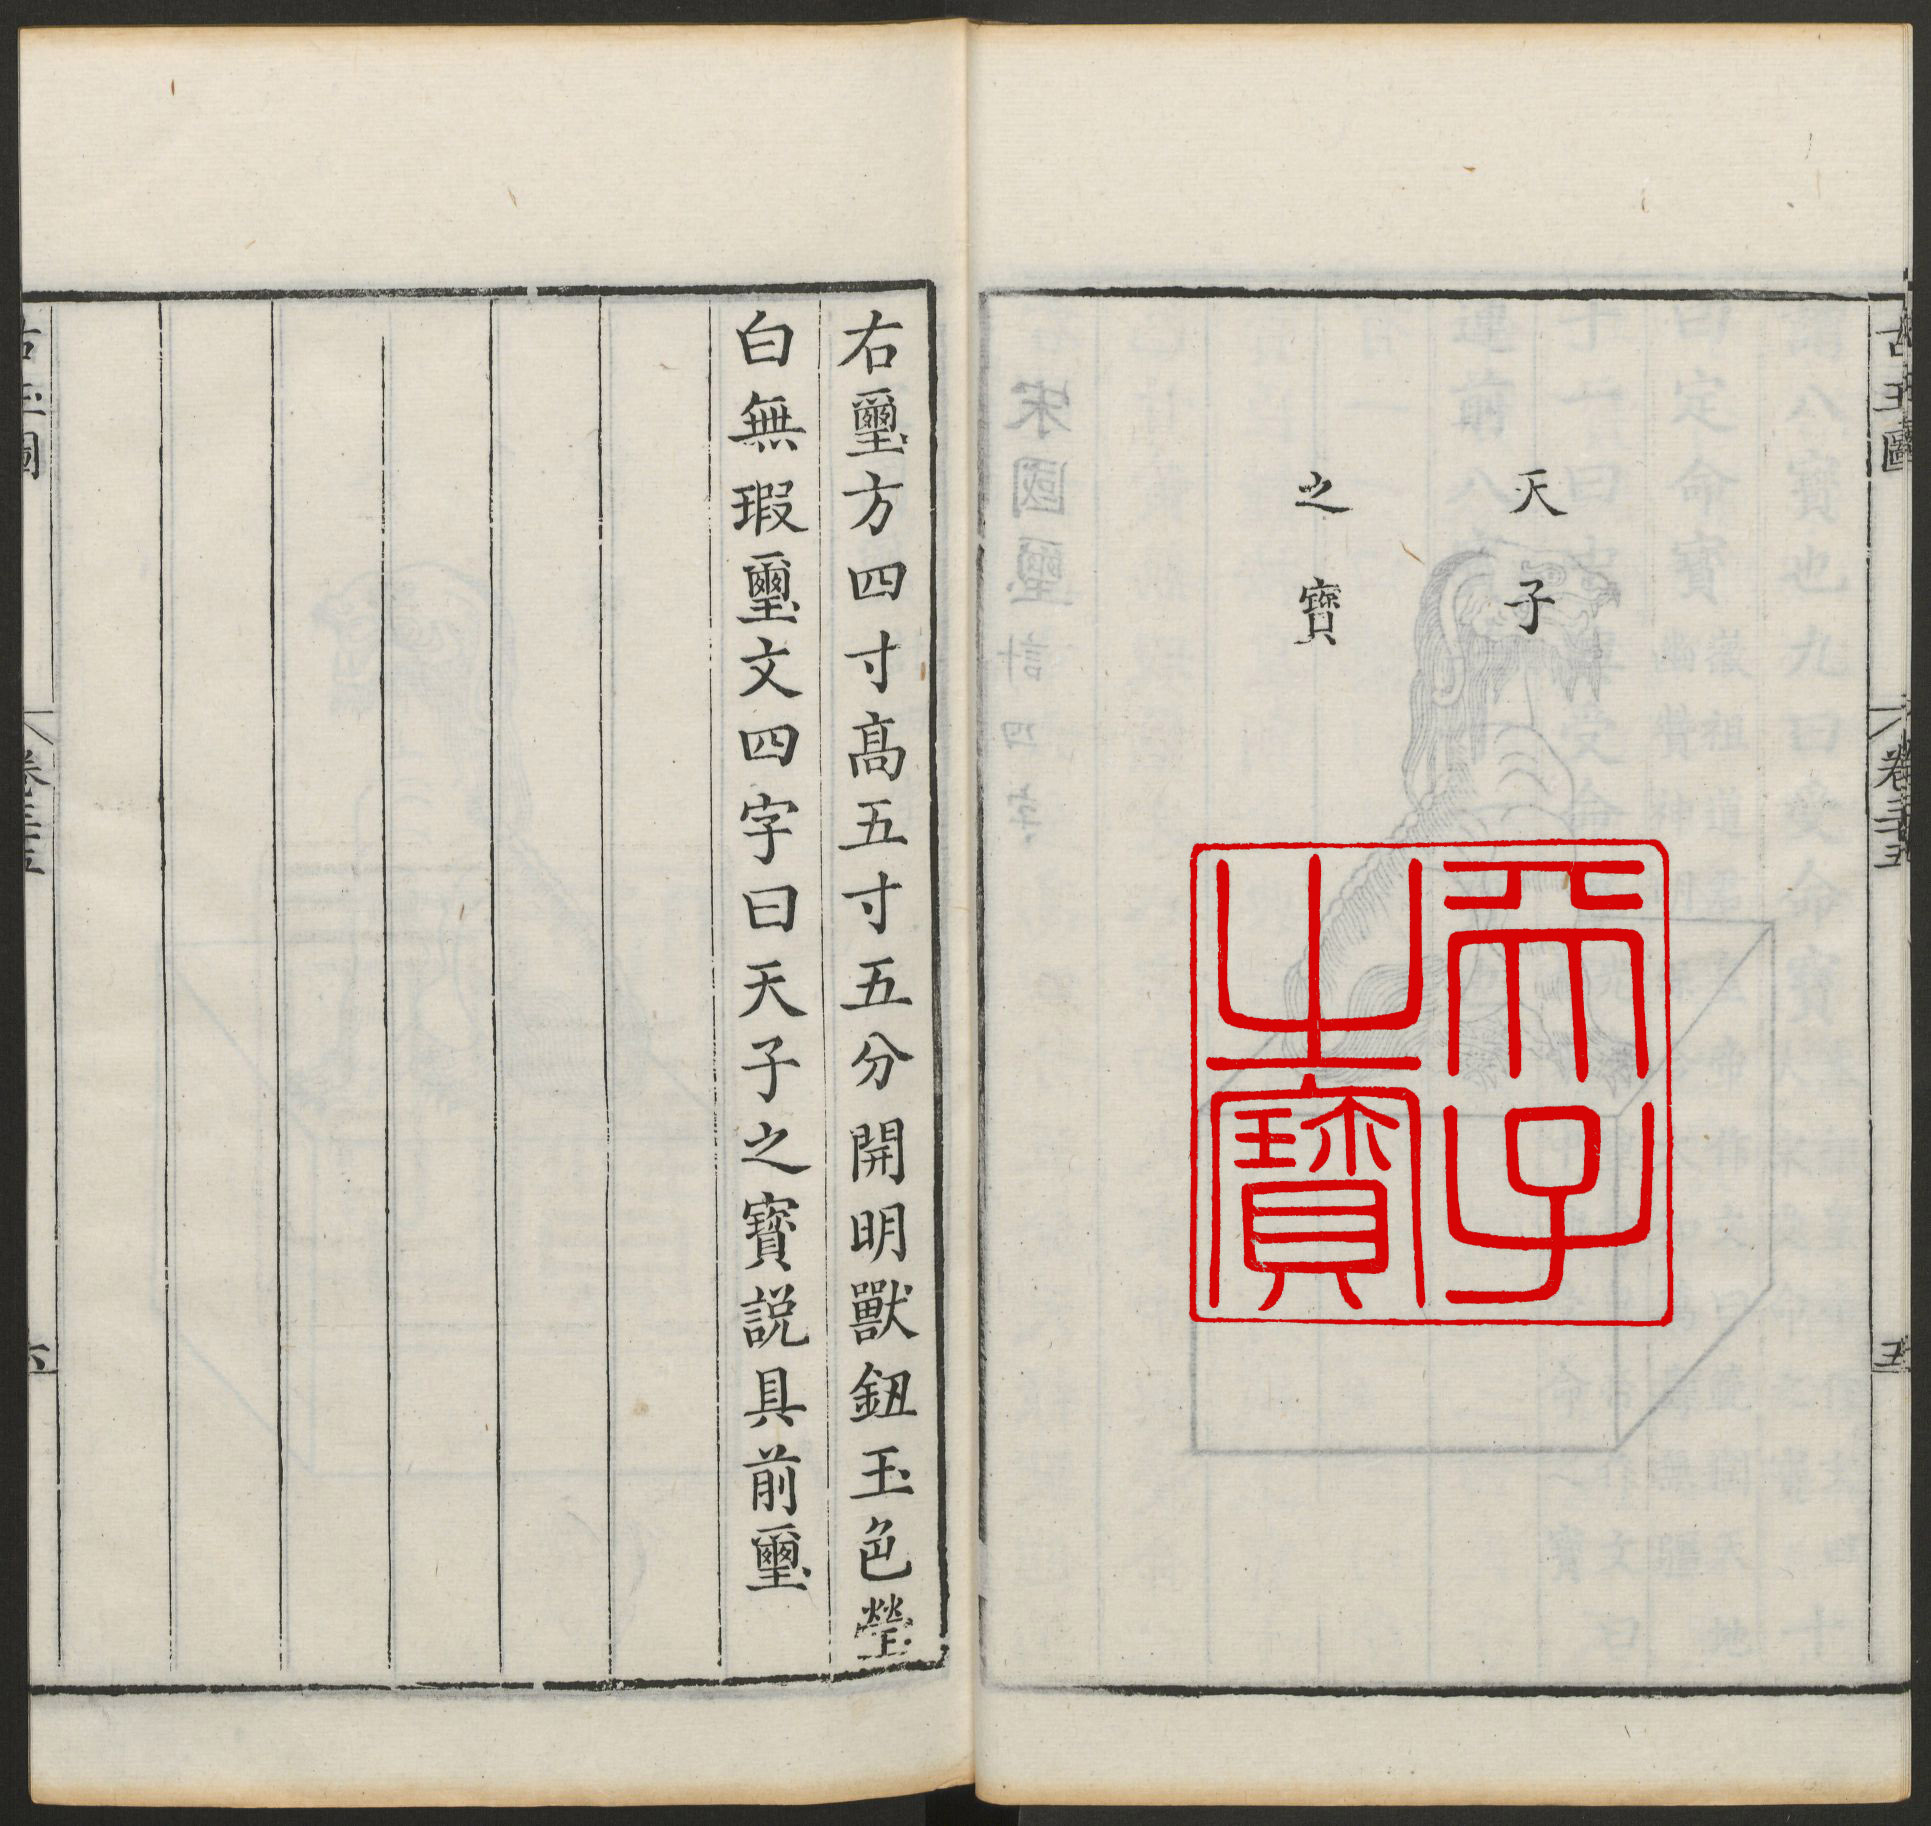 古玉圖
卷三十五
五
天子
之寶
天子
之寶
右璽方四寸高五寸五分開明獸鈕玉色瑩
白無瑕璽文四字曰天子之寶説具前璽